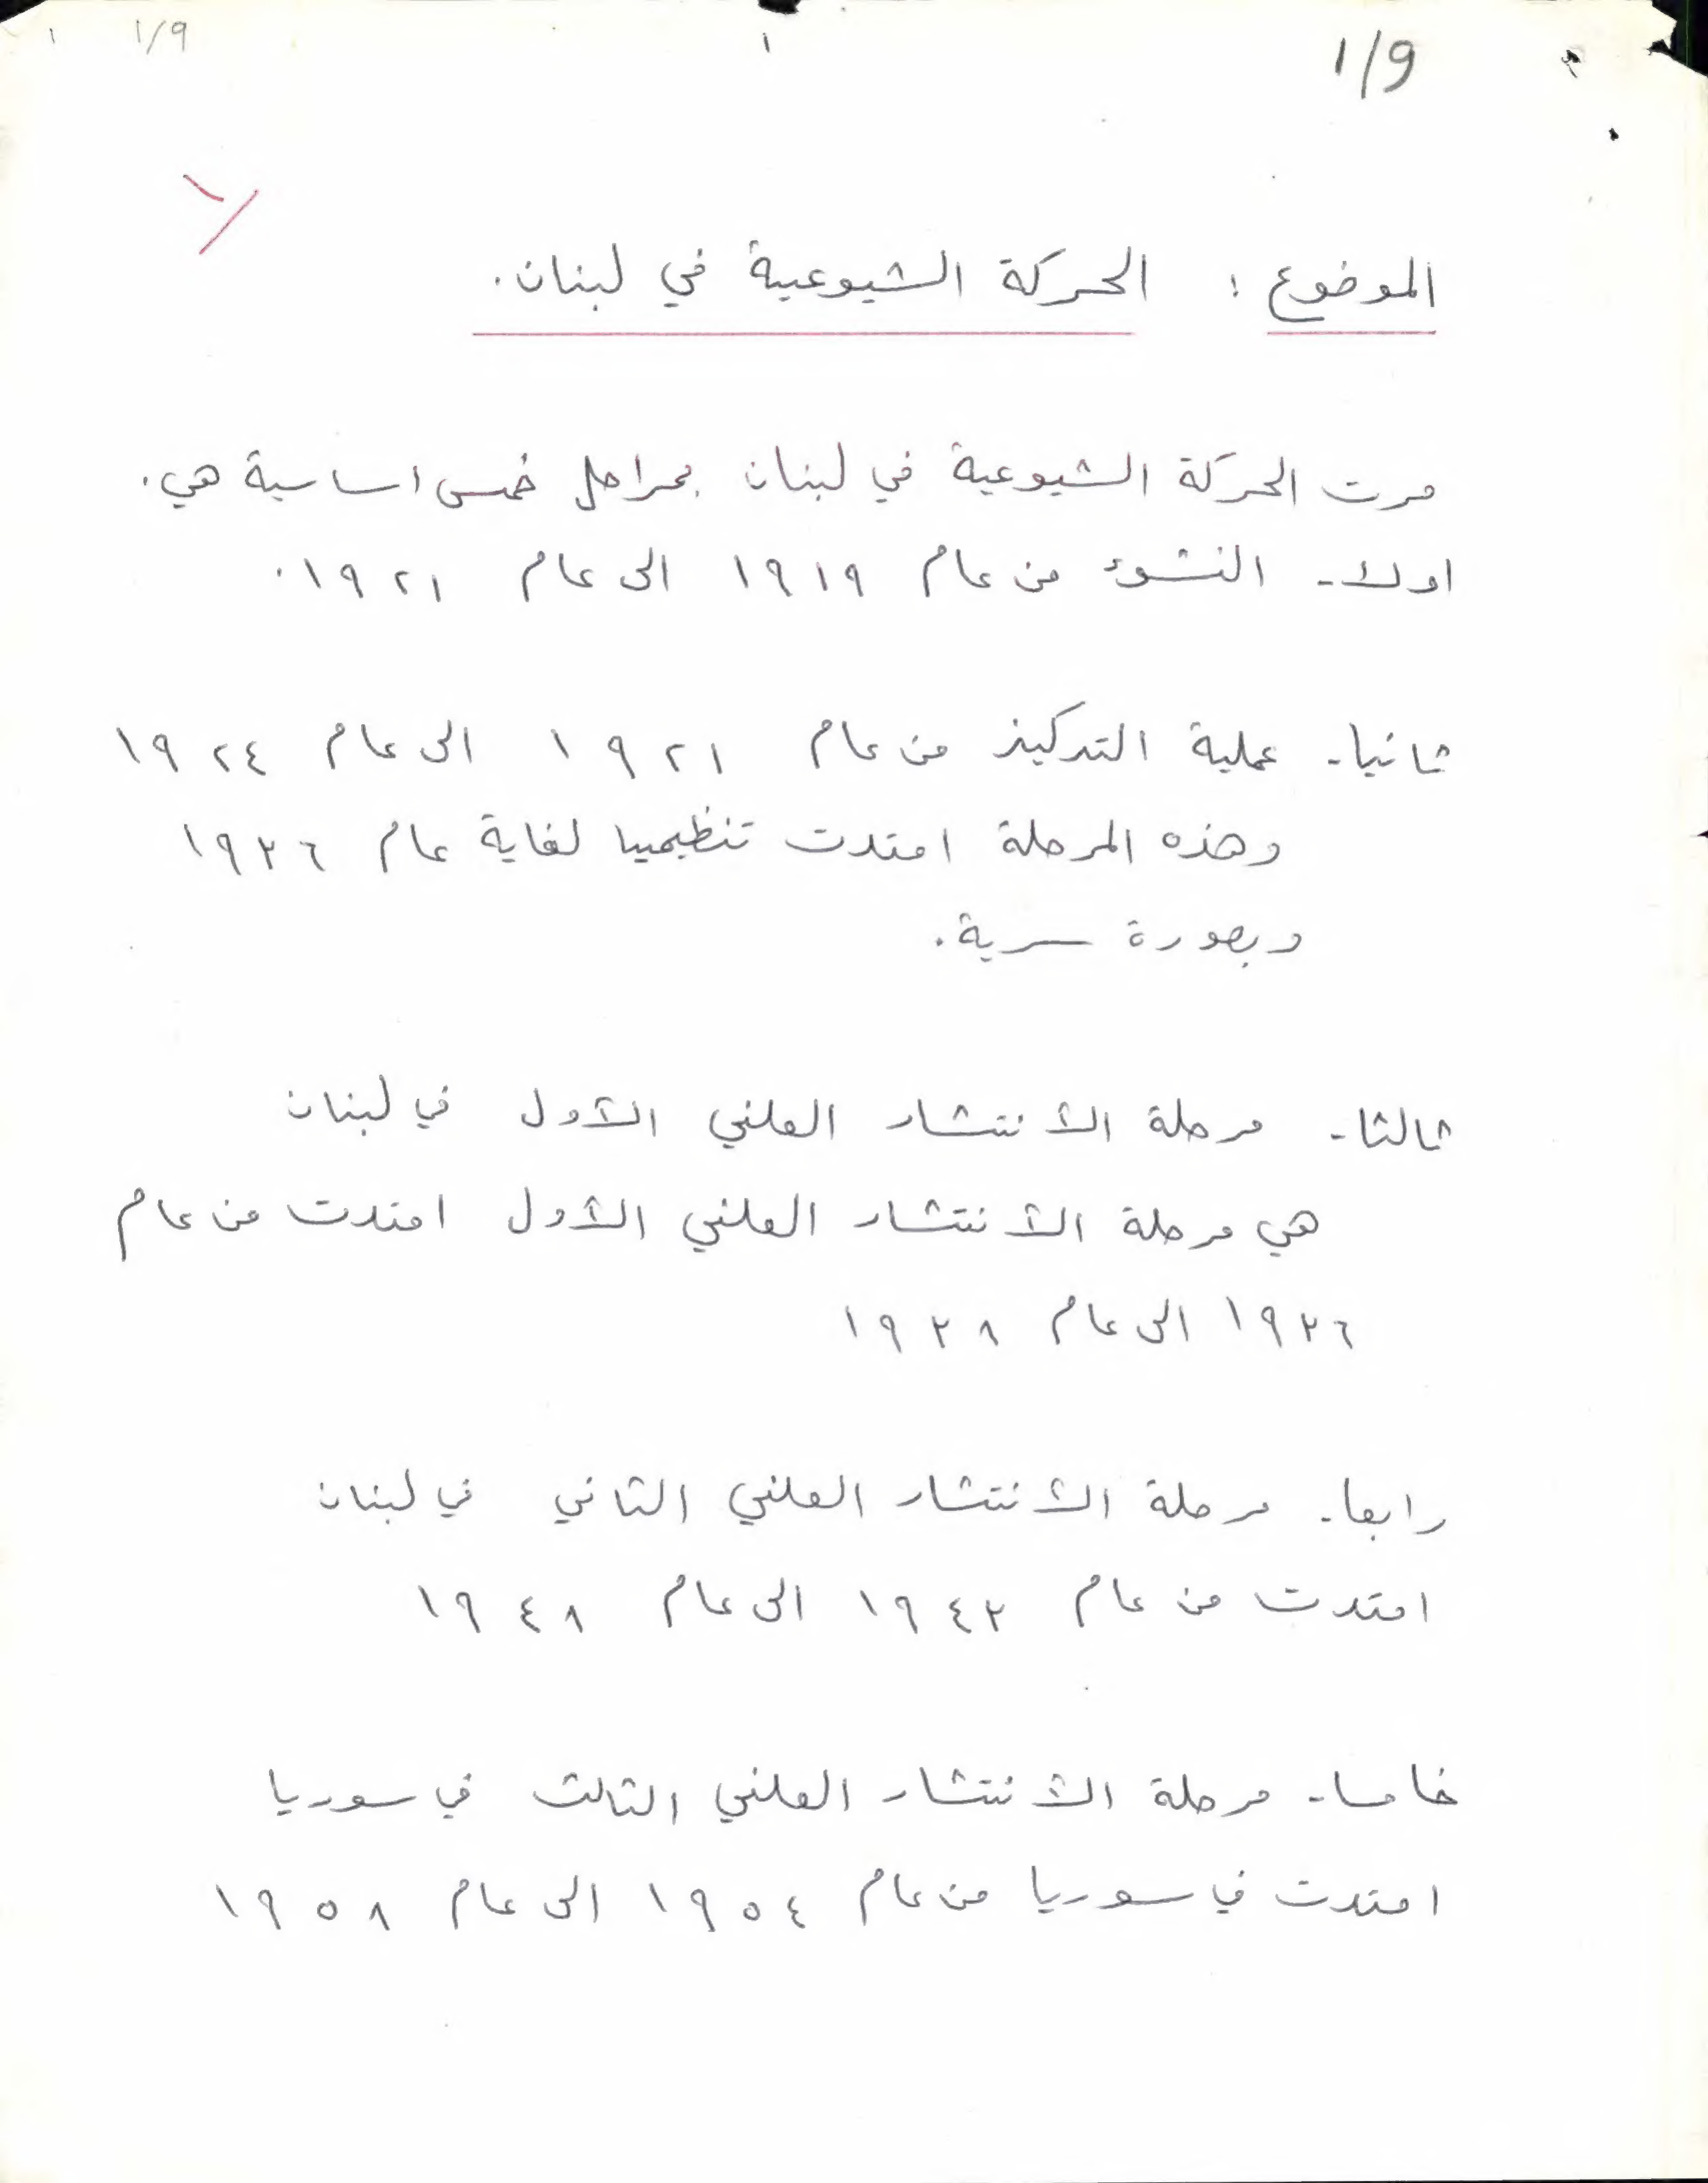 ١ 1/9 ١ 1/9
الموضوع : الحركة الشيوعية في لبنان.
مرت الحركة الشيوعية في لبنان بمراحل خمس اساسية هي.
اولا- النشوء من عام ١٩١٩ الى عام ١٩٢١.
ثانيا- عملية التركيز من عام ١٩٢١ الى عام ١٩٢٤
وهذه المرحلة امتدت تنظيميا لغاية عام ١٩٣٦
وبصورة سرية.
ثالثا- مرحلة الأنتشار العلني الأول في لبنان
هي مرحلة الأنتشار العلني الأول امتدت من عام
١٩٣٦ الى عام ١٩٣٨
رابعا- مرحلة الأنتشار العلني الثاني في لبنان
امتدت من عام ١٩٤٣ الى عام ١٩٤٨
خامسا- مرحلة الأنتشار العلني الثالث في سوريا
امتدت في سوريا من عام ١٩٥٤ الى عام ١٩٥٨